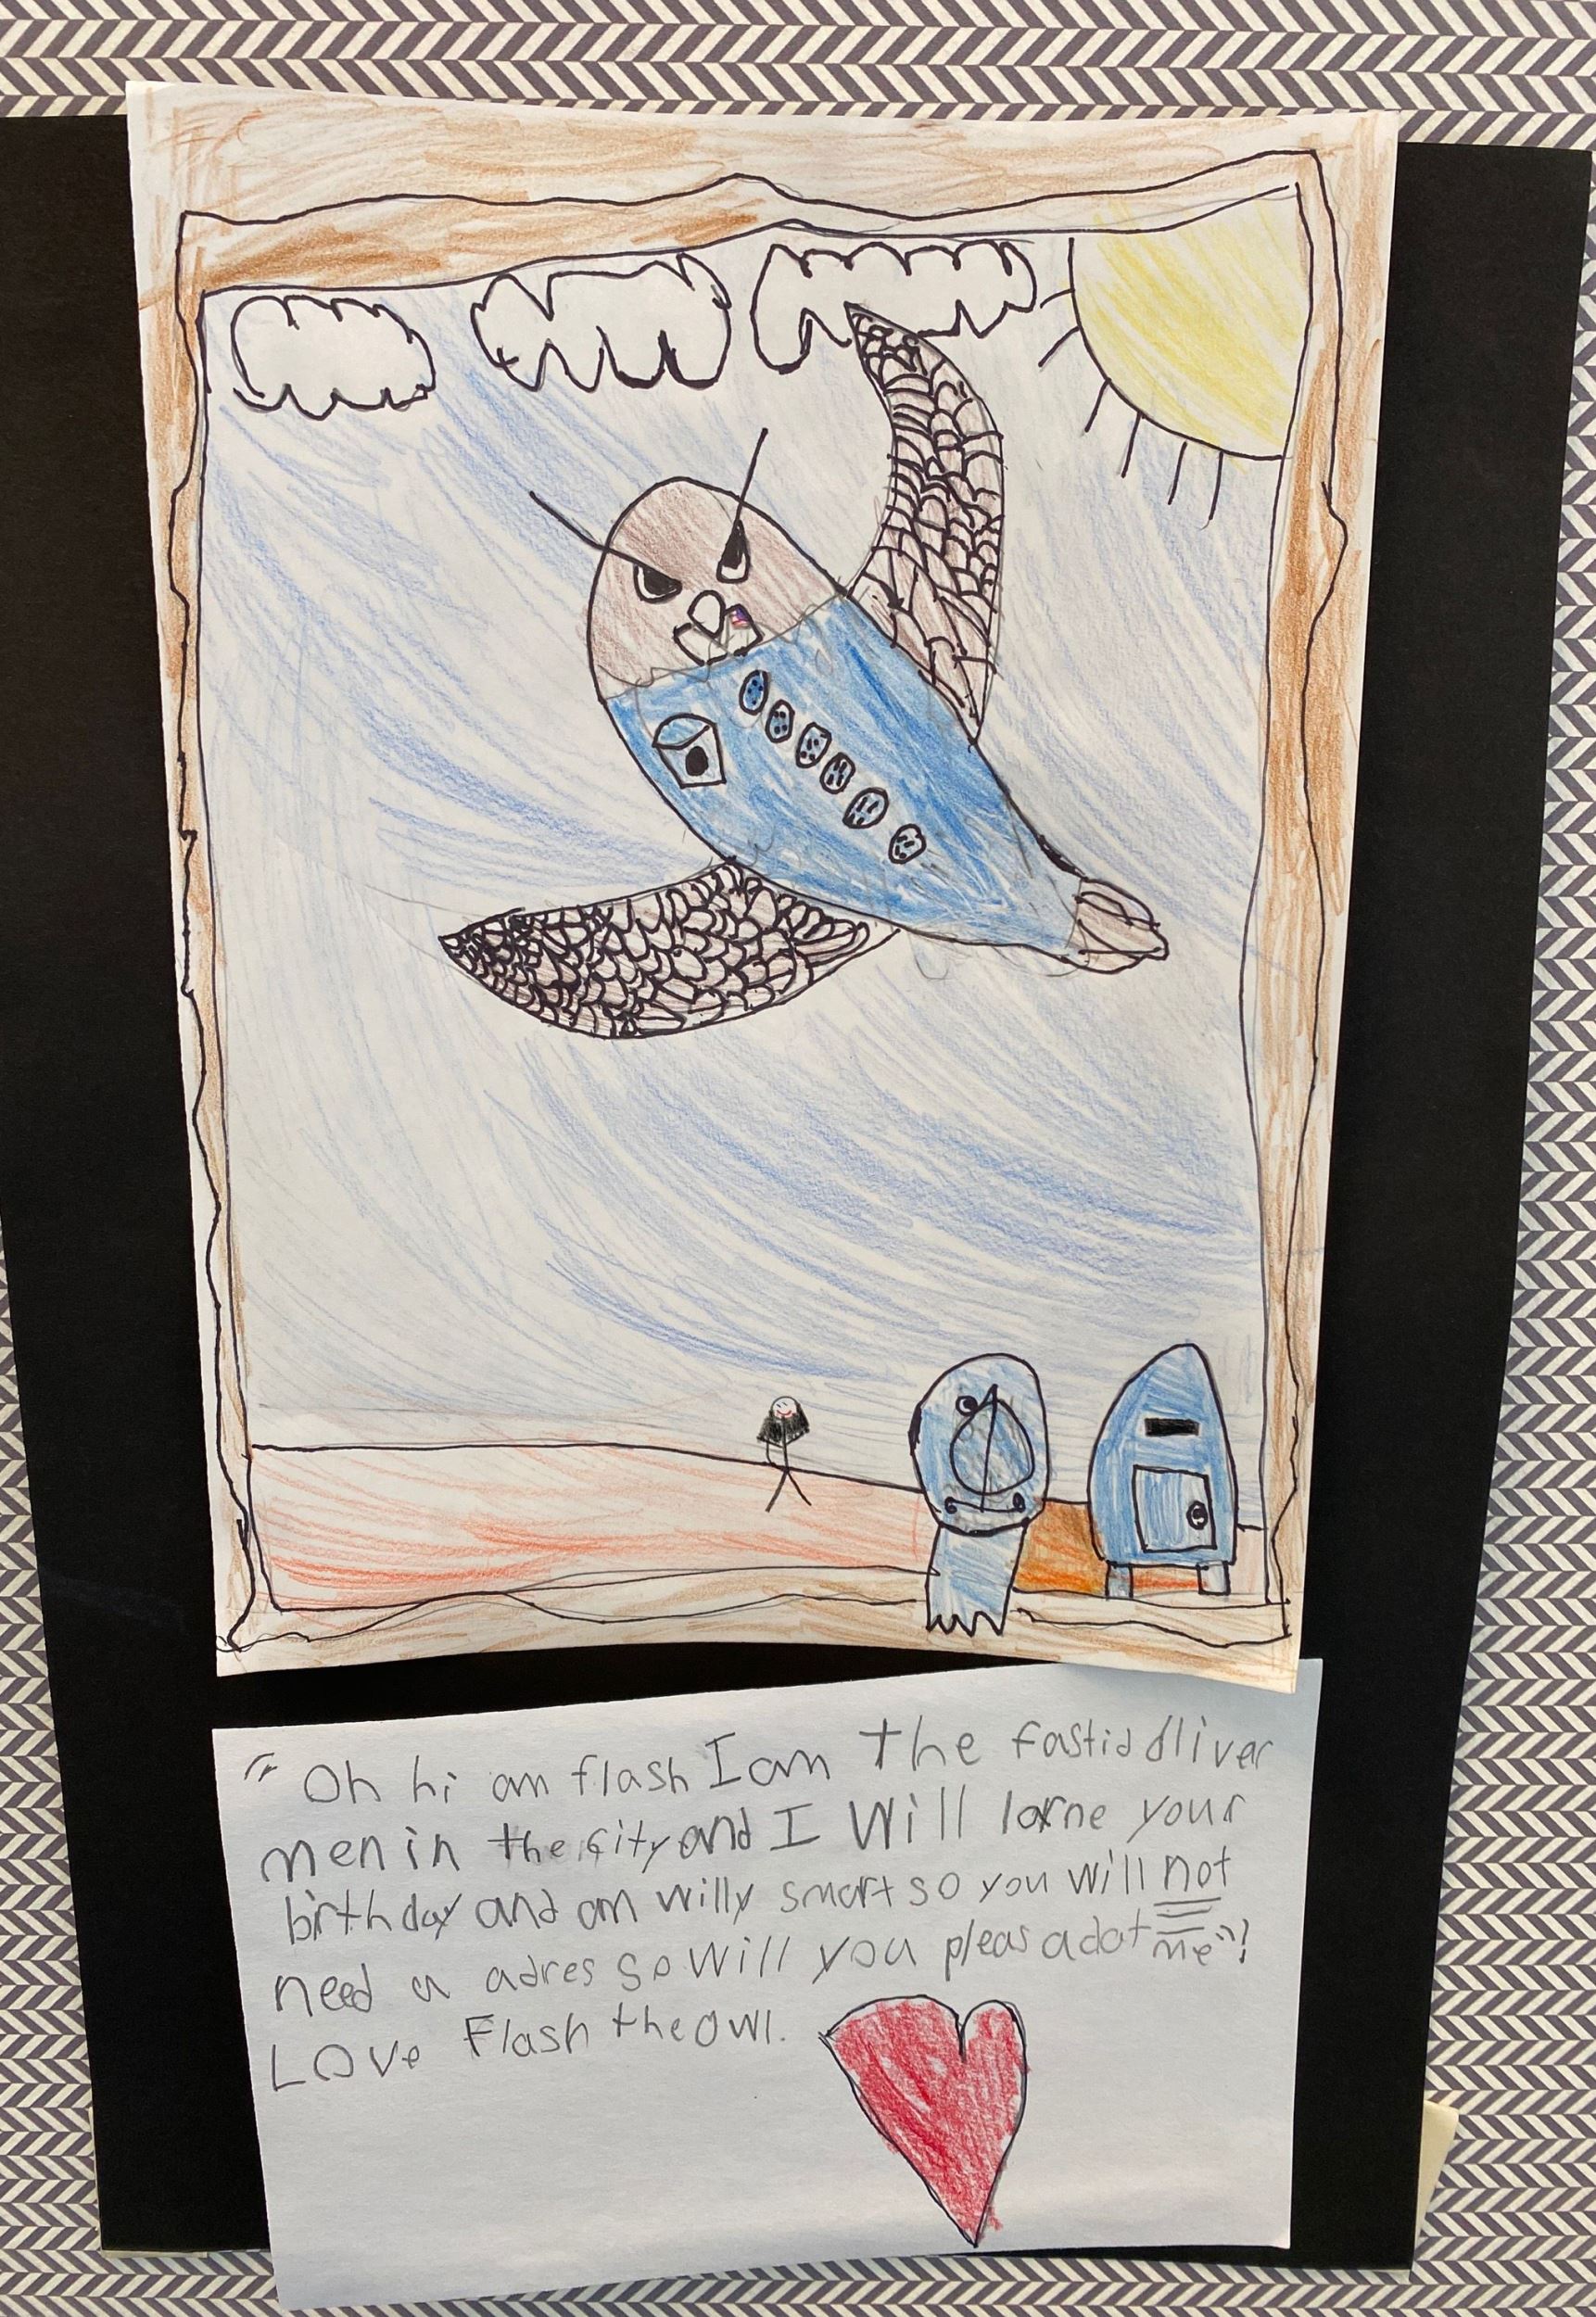 "Oh hi am flash I am the fastid dliver
men in the city and I Will lorne your
birthday and am willy smart so you will not
need a adres so Will you pleas adot me"?
Love Flash the owl.